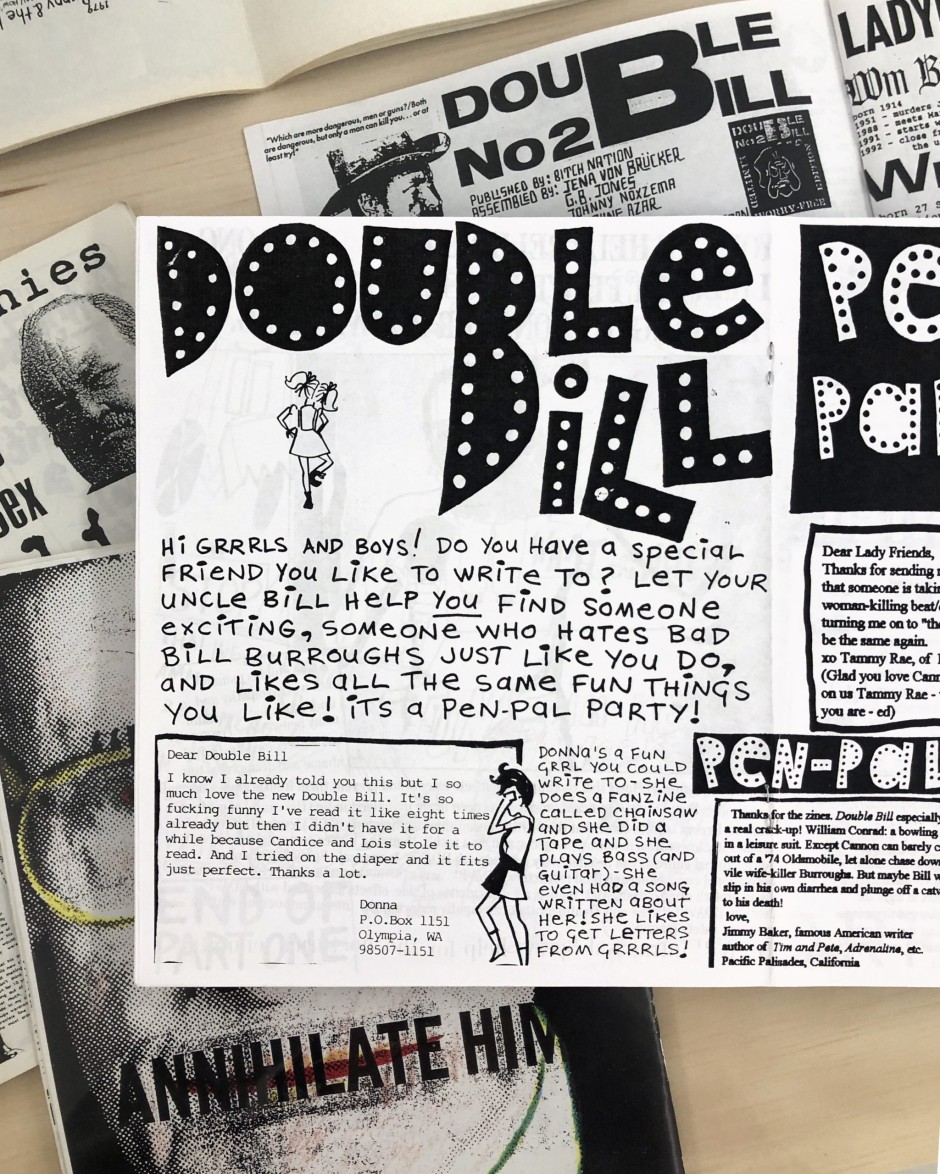 1979
"Which are more dangerous, men or guns?/Both
are dangerous, but only a man can kill you. . . or at
least try!"
DOUBLE
BILL
No 2
PUBLISHED BY: BITCH NATION
ASSEMBLED BY: JENA VON BRÜCKER
G.B. JONES
JOHNNY NOXZEMA
AZAR
DOUBLE
No2 BILL
LIMITED
EDITION
WORRY-FREE
LADY
Wm B
born 1914
1951 - murders
1988 - meets
1991 - starts w
1992 - close f
the u
born 27 S
nies
sex
DOUBLE
BiLL
Hi GRRRLS AND BOYS! DO YOU HAVE a SPECiaL
FRieND YOU LiKe TO WRiTe TO? LeT YOUR
UNCLe BiLL HeLP YOU FiND SOMeONe
eXCiTiNG, SOMeONe WHO HaTeS BaD
BiLL BURROUGHS JUST LiKe YOU DO,
aND LiKeS aLL THe Same FUN THiNGS
YOU LiKe! iTS a PeN-PaL PaRTY!
Dear Double Bill
I know I already told you this but I so
much love the new Double Bill. It's so
fucking funny I've read it like eight times
already but then I didn't have it for a
while because Candice and Lois stole it to
read. And I tried on the diaper and it fits
just perfect. Thanks a lot.
Donna
P.O.Box 1151
Olympia, WA
98507-1151
DONNa'S a FUN
GRRL YOU COULD
WRiTe TO-SHe
DOeS a FaNZiNe
CaLLeD CHaiNSaW
aND SHe DiD a
TaPe aND SHe
PLaYS BaSS (aND
GUiTaR)-SHe
eVeN HaD a SONG
WRiTTeN aBOUT
HeR! SHe LiKeS
TO GeT LeTTeRS
FROM GRRRLS!
Pe
Pa
Dear Lady Friends,
Thanks for sending
that someone is takin
woman-killing beat/
turning me on to "the
be the same again.
xo Tammy Rae, of
(Glad you love Cann
on us Tammy Rae -
you are - ed)
PeN-PaL
Thanks for the zines. Double Bill especially
a real crack-up! William Conrad: a bowling
in a leisure suit. Except Cannon can barely c
out of a '74 Oldsmobile, let alone chase down
vile wife-killer Burroughs. But maybe Bill w
slip in his own diarrhea and plunge off a catw
to his death!
love,
Jimmy Baker, famous American writer
author of Tim and Pete, Adrenaline, etc.
Pacific Palisades, California
END OF
PART ONE
ANNIHILATE HIM